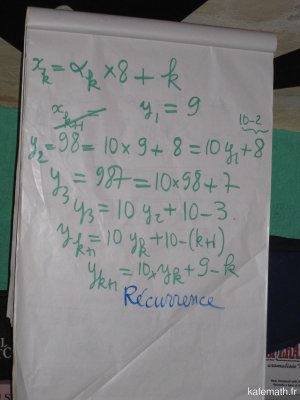 x_k = α_k × 8 + k
x_{k+1} =
y_1 = 9
10-2
y_2 = 98 = 10 × 9 + 8 = 10 y_1 + 8
y_3 = 987 = 10 × 98 + 7
y_3 = 10 y_2 + 10 - 3.
y_{k+1} = 10 y_k + 10 - (k+1)
y_{k+1} = 10 × y_k + 9 - k
Récurrence
kafemath.fr